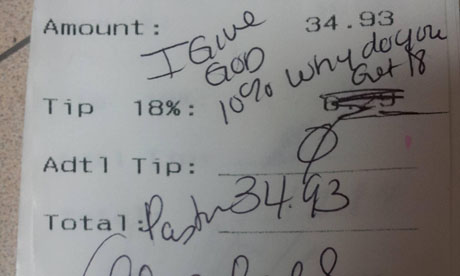 Amount: 34.93
I Give
God
10% Why do you
Get 18
Tip 18%:
Adtl Tip: 0
Total: Pastor 34.93